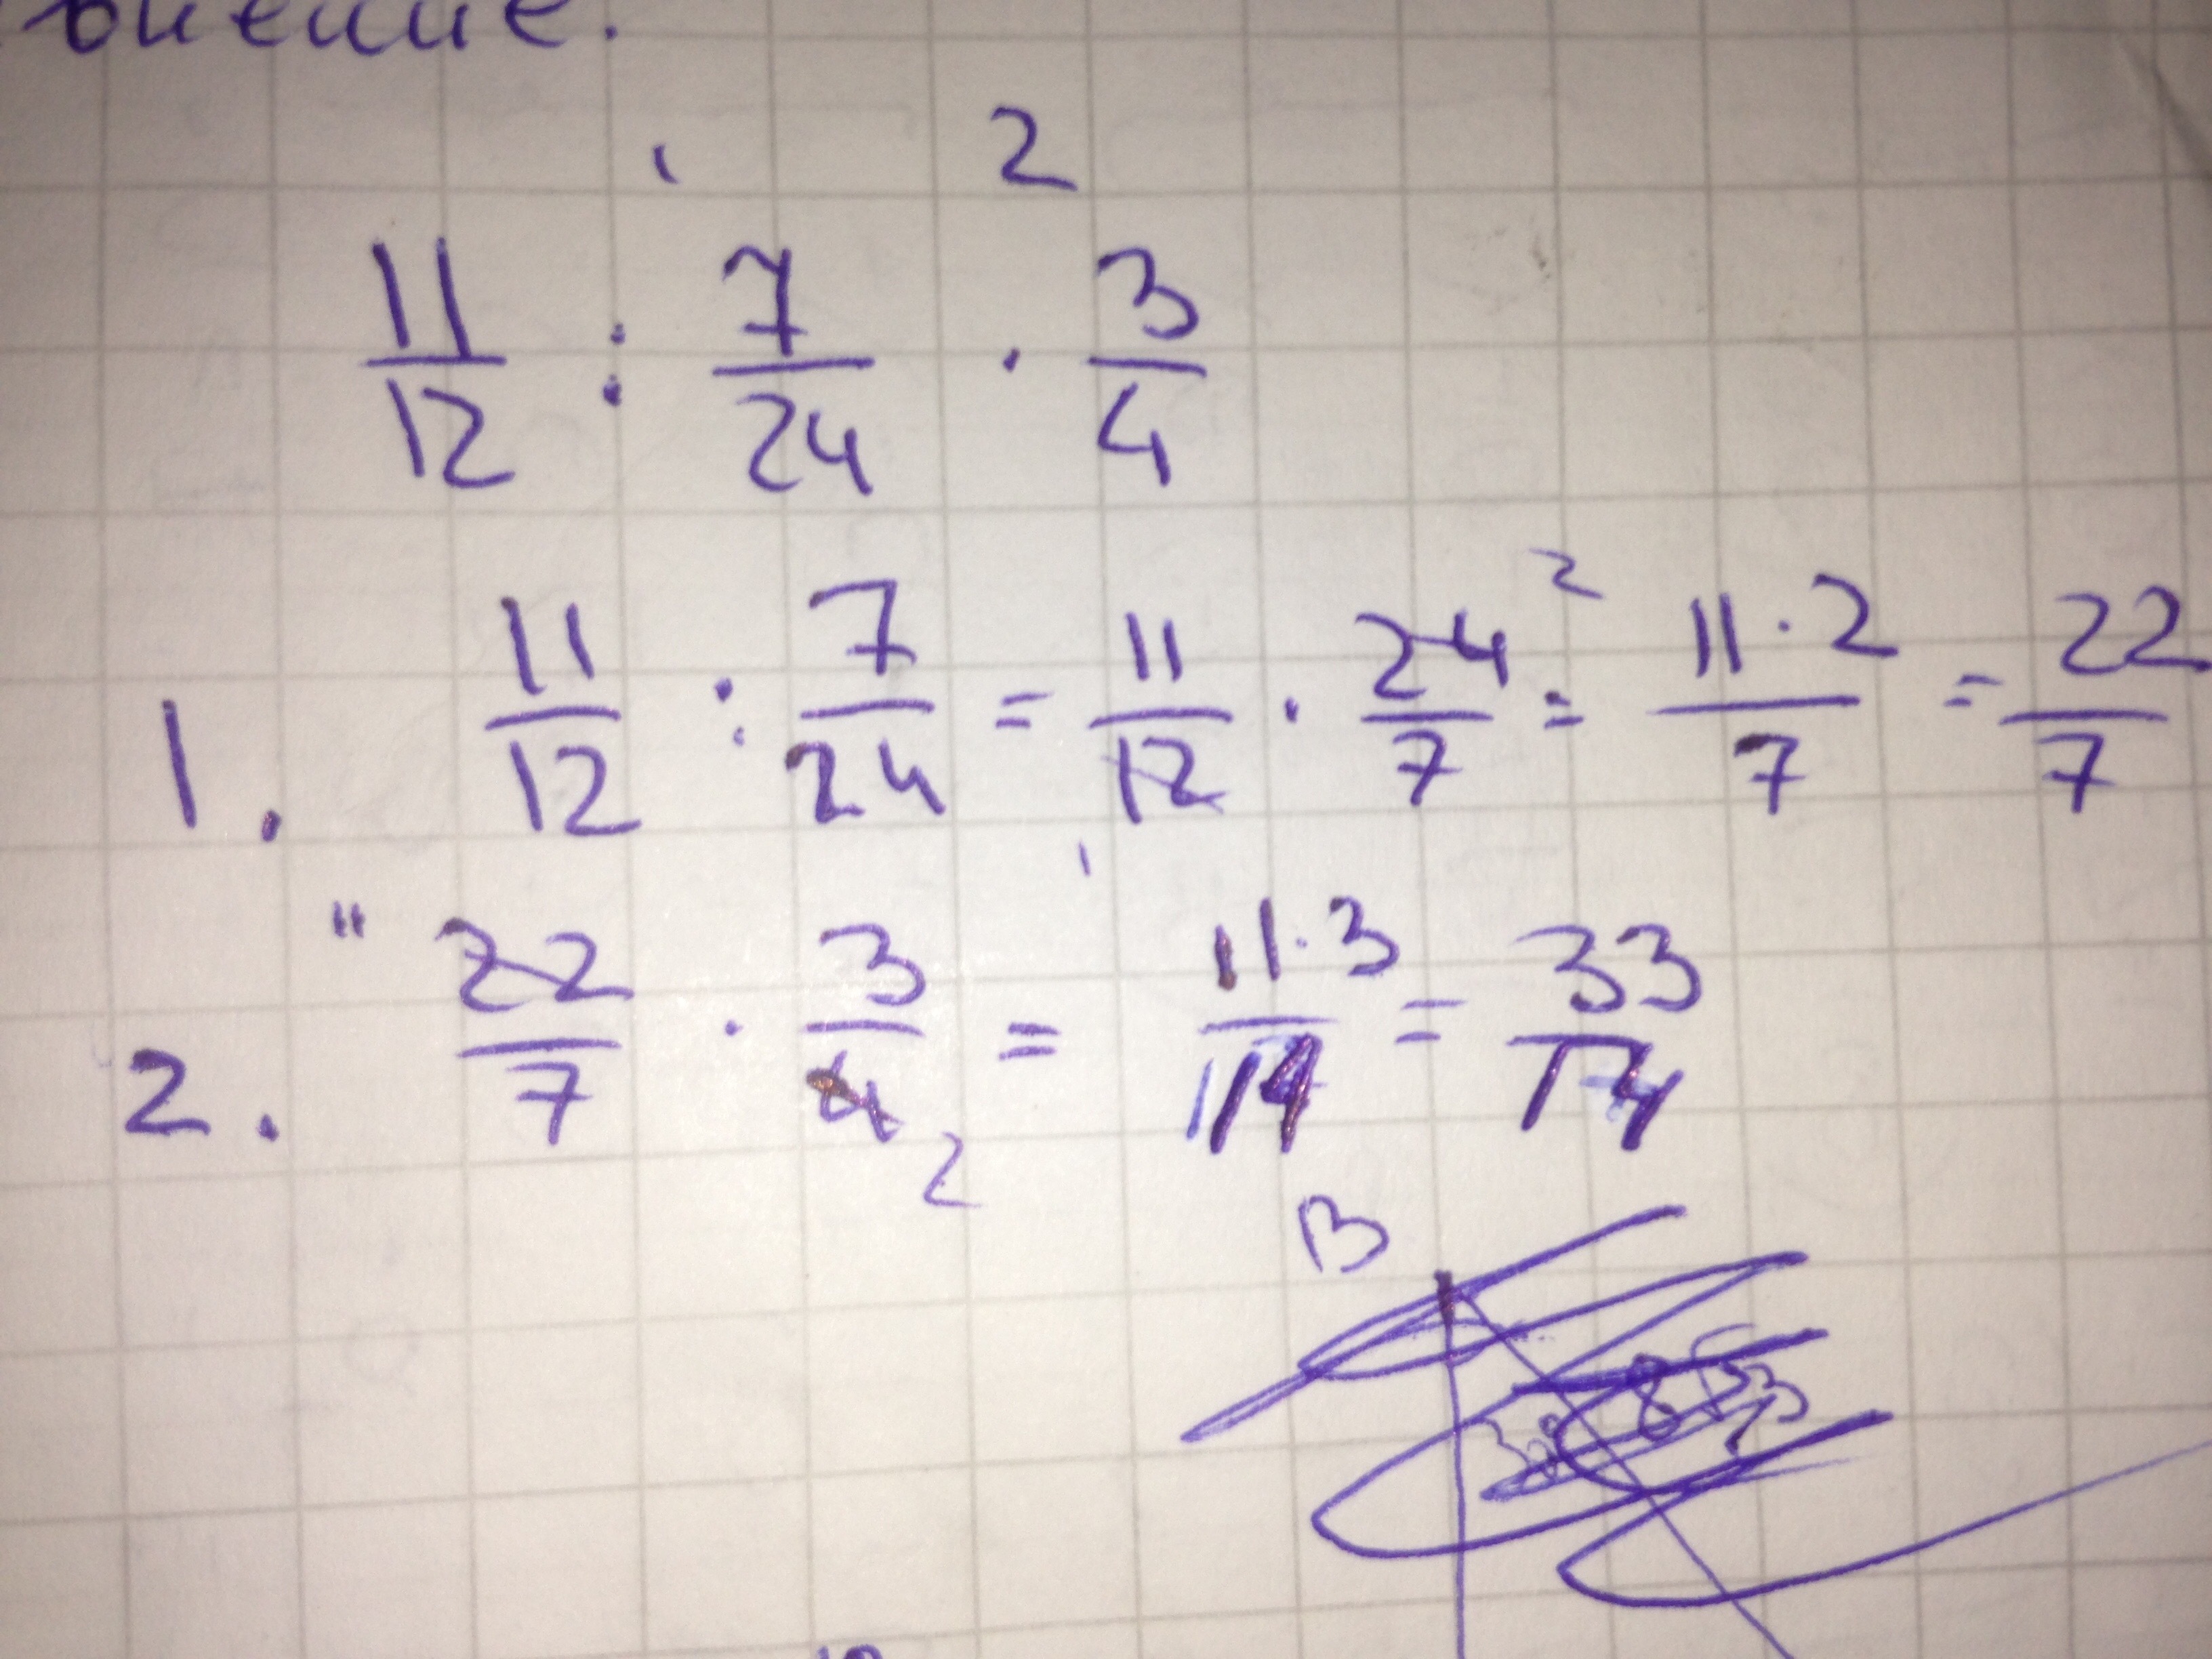 1 2
11/12 : 7/24 · 3/4
1. 11/12 : 7/24 = 11/12 · 24/7 = 11·2/7 = 22/7
2. 22/7 · 3/4 = 11·3/14 = 33/14
B